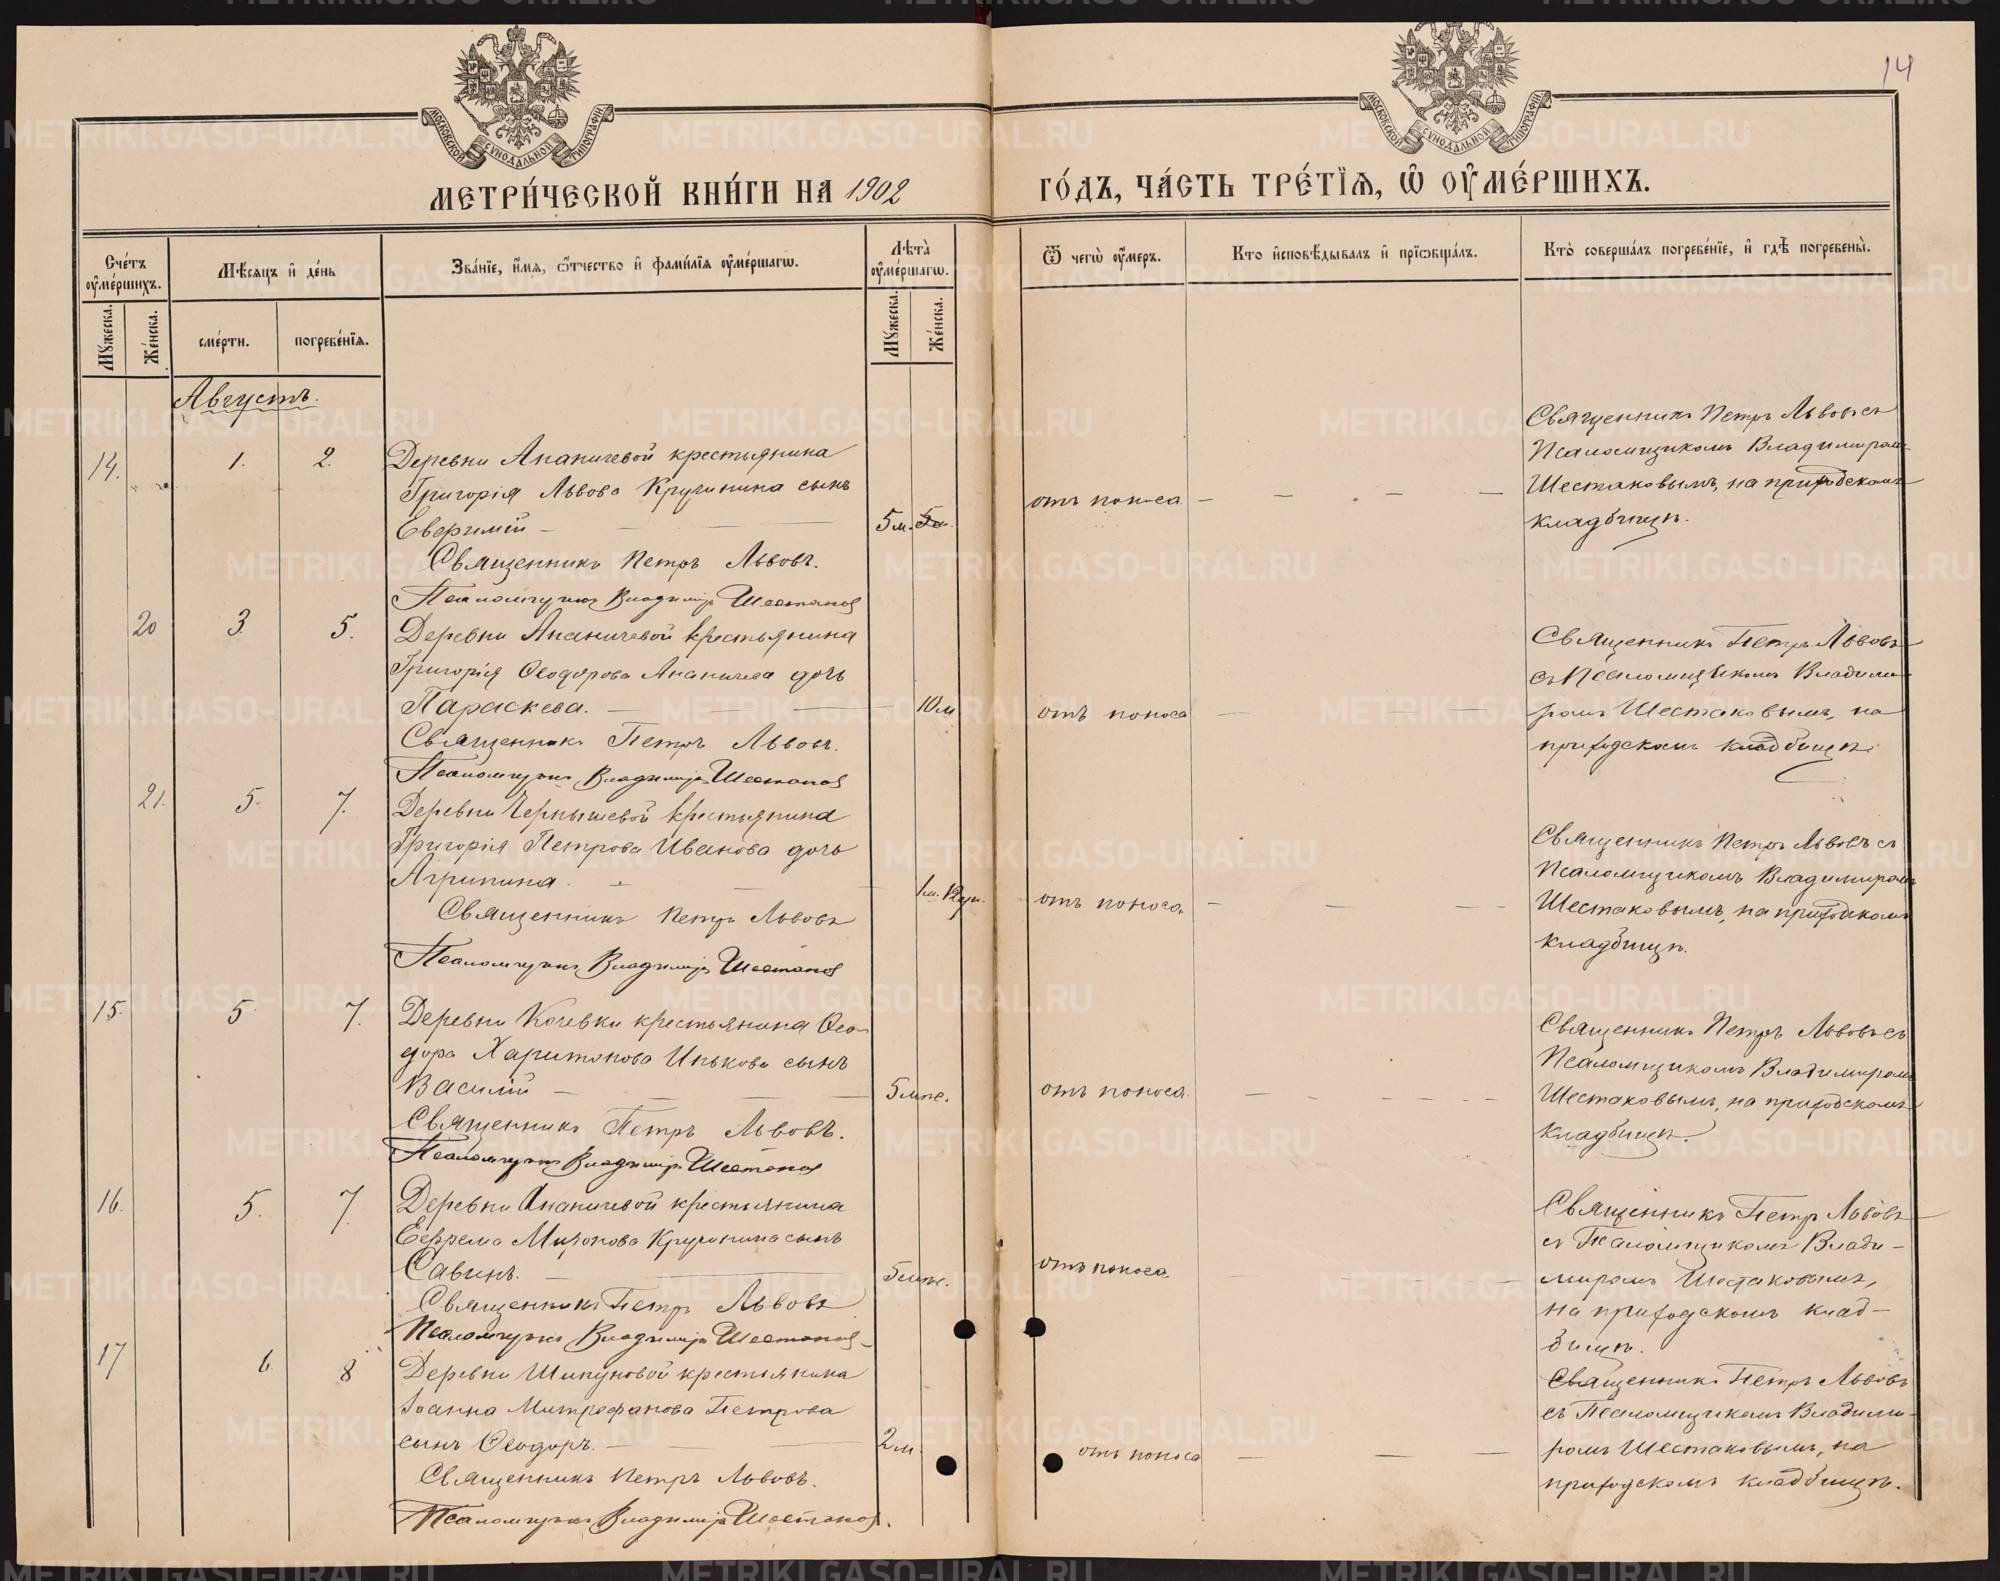 14
МОСКОВСКОЙ СѴНОДАЛЬНОЙ ТИПОГРАФІИ
МОСКОВСКОЙ СѴНОДАЛЬНОЙ ТИПОГРАФІИ
МЕТРИ́ЧЕСКОЙ КНИ́ГИ НА 1902 ГО́ДЪ, ЧА́СТЬ ТРЕ́ТЇѦ, Ѡ҆ ОУ҆МЕ́РШИХЪ.
Сче́тъ оу҆ме́ршихъ.
Мꙋ́жеска.
Же́нска.
Мѣ́сѧцъ и҆ де́нь
сме́рти.
погребе́нїѧ.
Зва́нїе, и҆́мѧ, ѻ҆́тчество и҆ фами́лїѧ оу҆ме́ршагѡ.
Лѣ́та оу҆ме́ршагѡ.
Мꙋ́жеска.
Же́нска.
Ѿ чегѡ̀ оу҆́меръ.
Кто̀ и҆сповѣ́дывалъ и҆ прїѡбща́лъ.
Кто̀ соверша́лъ погребе́нїе, и҆ гдѣ̀ погребены̀.
Августъ.
14. 1. 2.
Деревни Ананичевой крестьянина
Григорія Львова Кручинина сынъ
Евфимій — 5 м.
Священникъ Петръ Львовъ.
Псаломщикъ Владиміръ Шестаковъ
отъ поноса
Священникъ Петръ Львовъ съ
Псаломщикомъ Владиміромъ
Шестаковымъ, на приходскомъ
кладбищѣ.
20 3. 5.
Деревни Ананичевой крестьянина
Григорія Ѳеодорова Ананичева дочь
Параскева. — 10 м
Священникъ Петръ Львовъ.
Псаломщикъ Владиміръ Шестаковъ
отъ поноса
Священникъ Петръ Львовъ
съ Псаломщикомъ Владимі-
ромъ Шестаковымъ, на
приходскомъ кладбищѣ
21. 5. 7.
Деревни Чернышевой крестьянина
Григорія Петрова Иванова дочь
Агрипина. — 1 м. 12 дн.
Священникъ Петръ Львовъ
Псаломщикъ Владиміръ Шестаковъ
отъ поноса.
Священникъ Петръ Львовъ съ
Псаломщикомъ Владиміромъ
Шестаковымъ, на приходскомъ
кладбищѣ.
15. 5. 7.
Деревни Кочевки крестьянина Ѳео-
дора Харитонова Инькова сынъ
Василій — 5 мѣс.
Священникъ Петръ Львовъ.
Псаломщикъ Владиміръ Шестаковъ
отъ поноса.
Священникъ Петръ Львовъ съ
Псаломщикомъ Владиміромъ
Шестаковымъ, на приходскомъ
кладбищѣ.
16. 5. 7.
Деревни Ананичевой крестьянина
Ефрема Кручинина сынъ
Савинъ. — 5 мѣс.
Священникъ Петръ Львовъ
Псаломщикъ Владиміръ Шестаковъ
отъ поноса
Священникъ Петръ Львовъ
съ Псаломщикомъ Влади-
міромъ Шестаковымъ,
на приходскомъ клад-
бищѣ.
17 6. 8
Деревни Шипуновой крестьянина
Іоанна Митрофанова Петрова
сынъ Ѳеодоръ. — 2 м.
Священникъ Петръ Львовъ.
Псаломщикъ Владиміръ Шестаковъ.
отъ поноса
Священникъ Петръ Львовъ
съ Псаломщикомъ Владимі-
ромъ Шестаковымъ, на
приходскомъ кладбищѣ.
METRIKI.GASO-URAL.RU